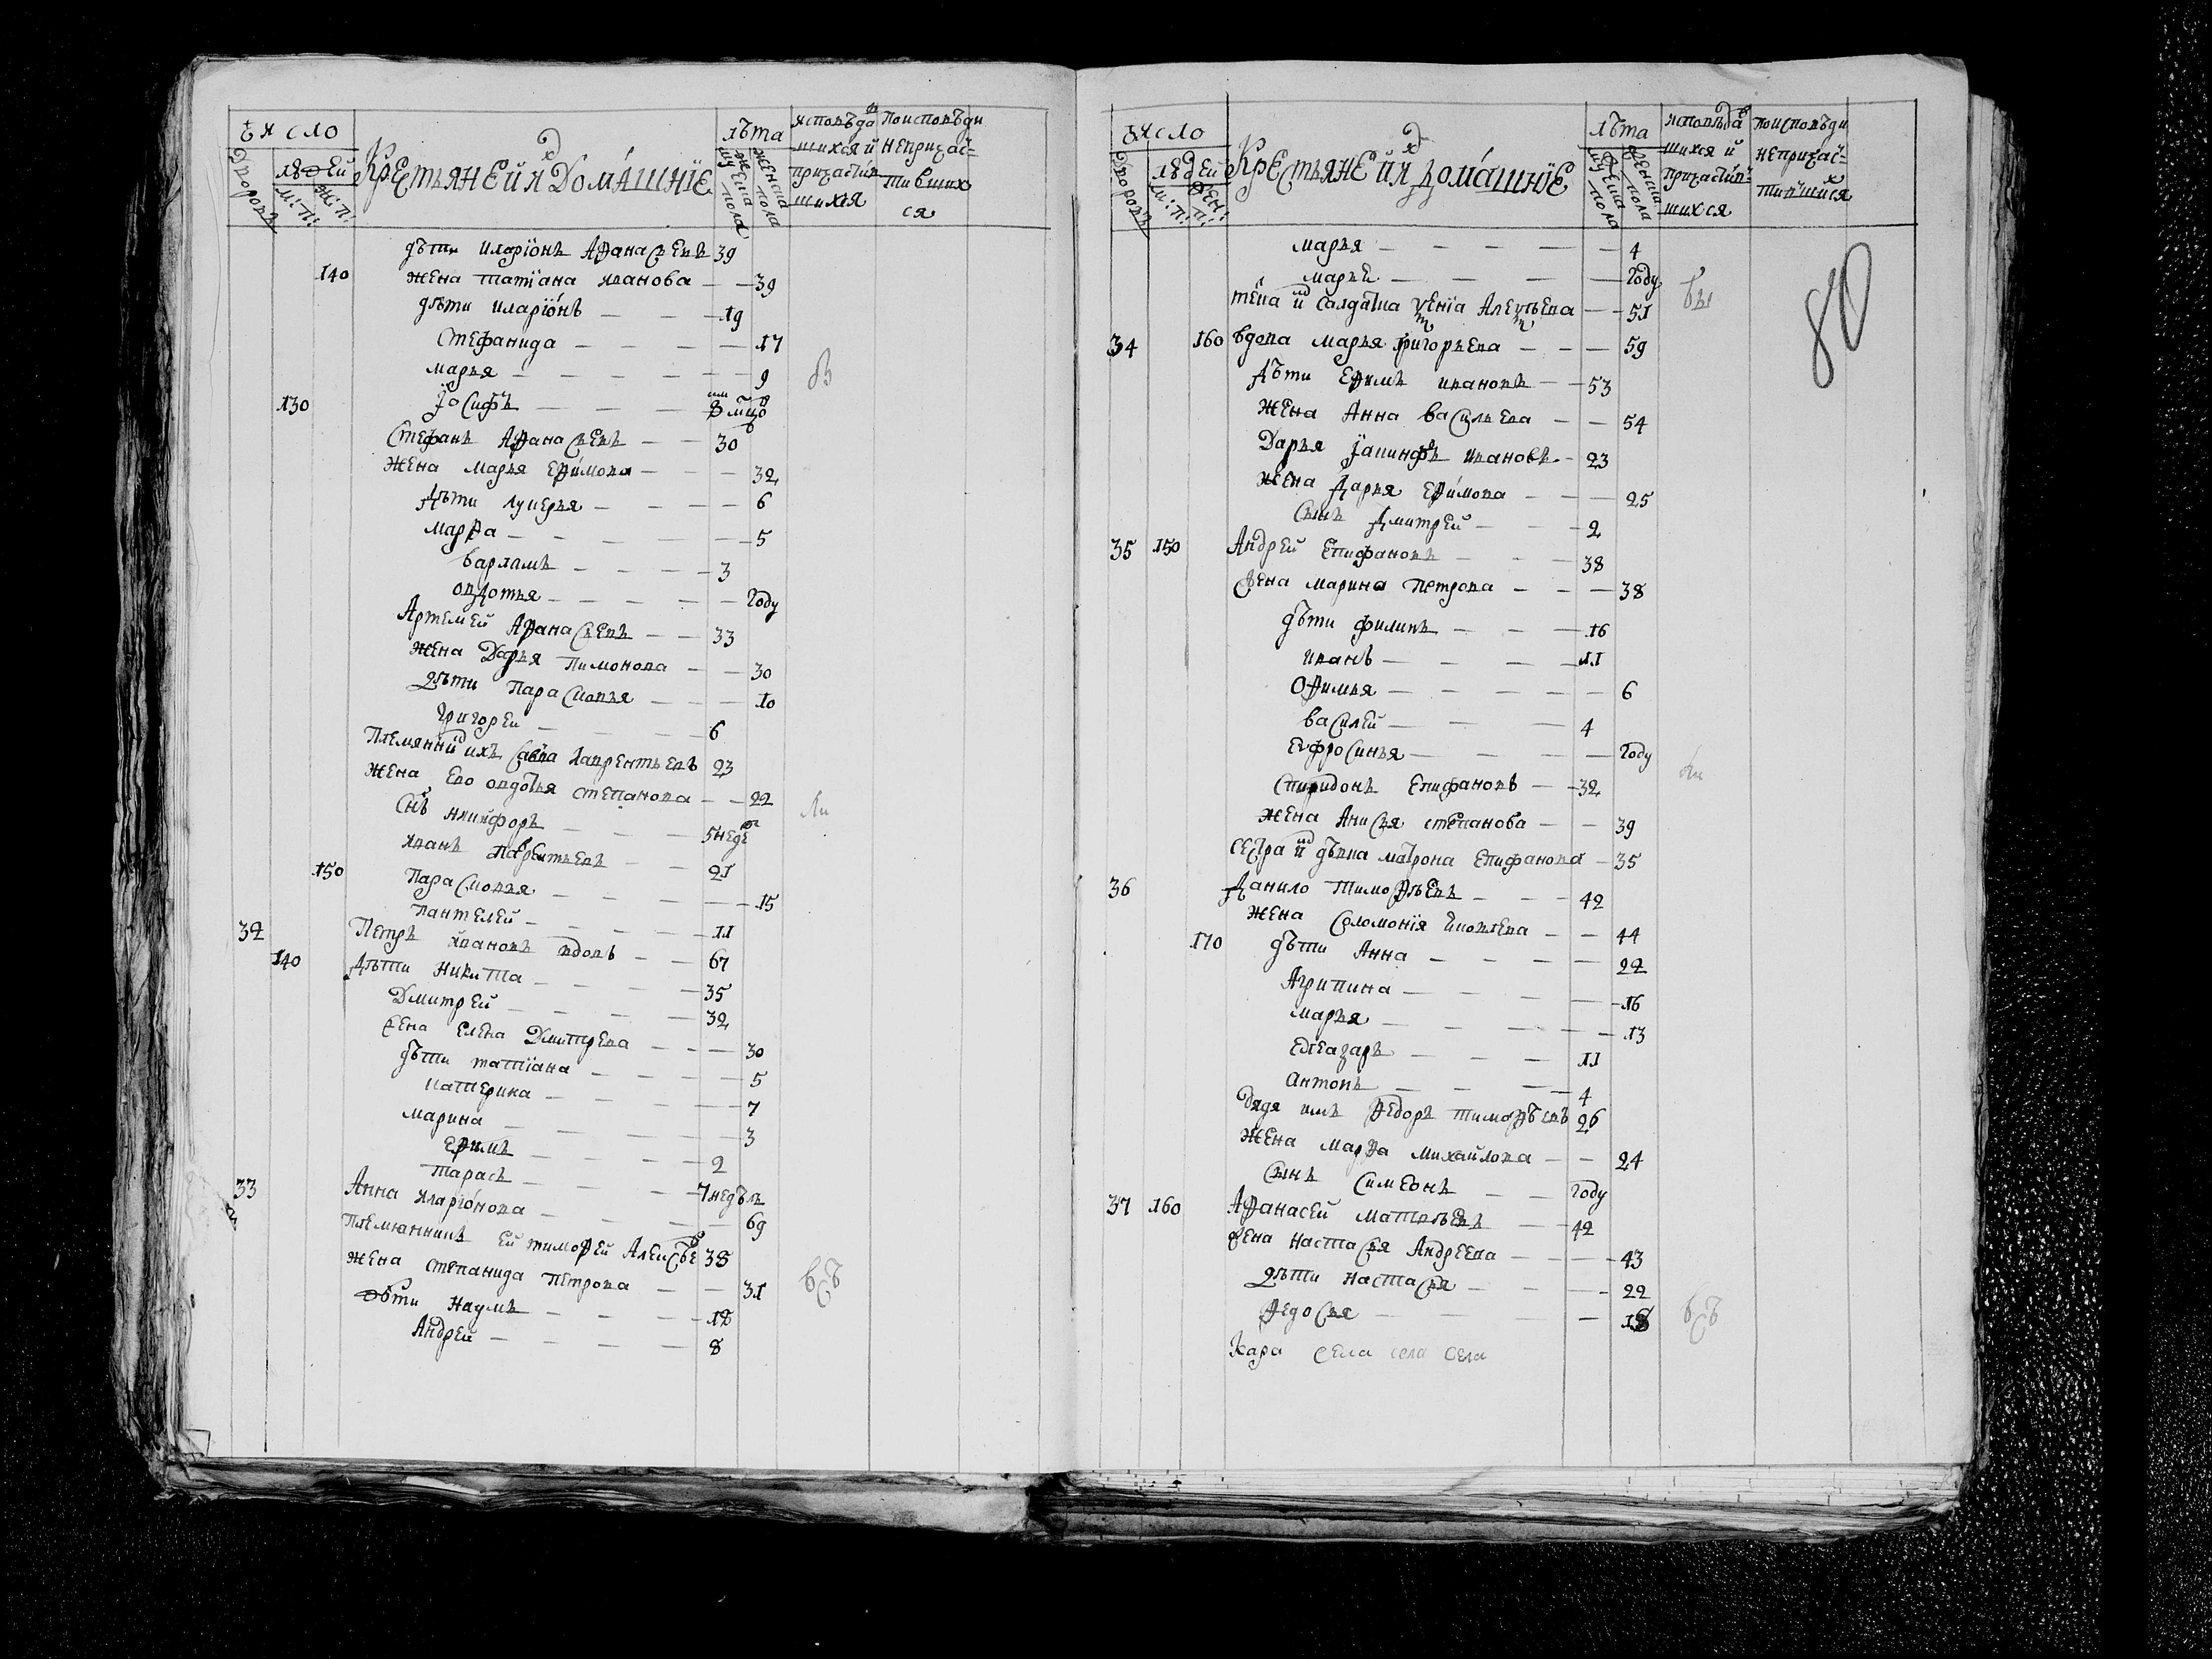 число
Дворовъ
людей
м: п:
ж: п:
Крестьяне и ихъ домашнїе
лѣта
мужеска пола
женска пола
исповѣда
шихся и
причастив
шихся
по исповѣди
неприча
тивших
ся
дѣти Иларїонъ Аѳанасьевъ 39
140 жена татїана иванова — — 39
дѣти иларїонъ — — — 19
Стефанида — — — — — 17
марья — — — — — — 9
130 Іосифъ — — — — 8
Стефанъ Аѳанасьевъ — — 30
жена марья еѳимова — — — 32
дѣти лукерья — — — — 6
марѳа — — — — — — 5
варламъ — — — — 3
овдотья — — — — — году
Артемей Аѳанасьевъ — — 33
жена Дарья пимонова — — 30
дѣти парасковья — — — 10
григорей — — — — 6
племянникъ ихъ савва лаврентьевъ 23
жена ево овдотья степанова — — 22
снъ никифоръ — — — 5 неде
иванъ лаврентьевъ — — 21
150 парасковья — — — — — 15
пантелей — — — — 11
32 Петръ ивановъ вдовъ — — 67
140 дѣти никита — — — — 35
Дмитрей — — — — 32
жена елена Дмитрева — — — 30
дѣти татїана — — — — 5
катерина — — — — — 7
марина — — — — — 3
еѳимъ — — — — 2
тарасъ — — — — 7 недѣль
33 Анна иларїонова — — — — 69
племянникъ ей тимоѳей Алексѣе 38
жена степанида петрова — — 31
дѣти наумъ — — — — 12
Андрей — — — — 8
число
Дворовъ
людей
м: п:
жен: п:
Крестьяне и ихъ домашнїе
лѣта
мужеска пола
женска пола
исповѣда
шихся и
причастив
шихся
по исповѣди
неприча
тившихся
80
марья — — — — — 4
марья — — — — — году
салдатка Алексѣева — — 51
34 160 вдова марья григорьева — — — 59
дѣти еѳимъ ивановъ — — 53
жена Анна васильева — — 54
Дарья ивановъ — 23
жена Дарья еѳимова — — — 25
сынъ Дмитрей — — — 2
35 150 Андрей епифановъ — — — 38
жена марина петрова — — — 38
дѣти филипъ — — — 16
иванъ — — — — 11
оѳимья — — — — — 6
василей — — — 4
евфросинья — — — — году
спиридонъ епифановъ — — 32
жена анисья степанова — — 39
сестра дѣвка матрона епифанова — 35
36 Данило тимоѳѣевъ — — — 42
жена соломонїя — — 44
170 дѣти Анна — — — — 22
Агрипина — — — — — 16
марья — — — — — 13
елеазаръ — — — — 11
антонъ — — — — 4
дядя имъ ѳедоръ тимоѳѣевъ 26
жена марѳа михайлова — — 24
сынъ симеонъ — — году
37 160 Аѳанасей матвѣевъ — — 42
жена настасья Андреева — — — 43
дѣти настасья — — — — 22
ѳедосья — — — — 18
села села села